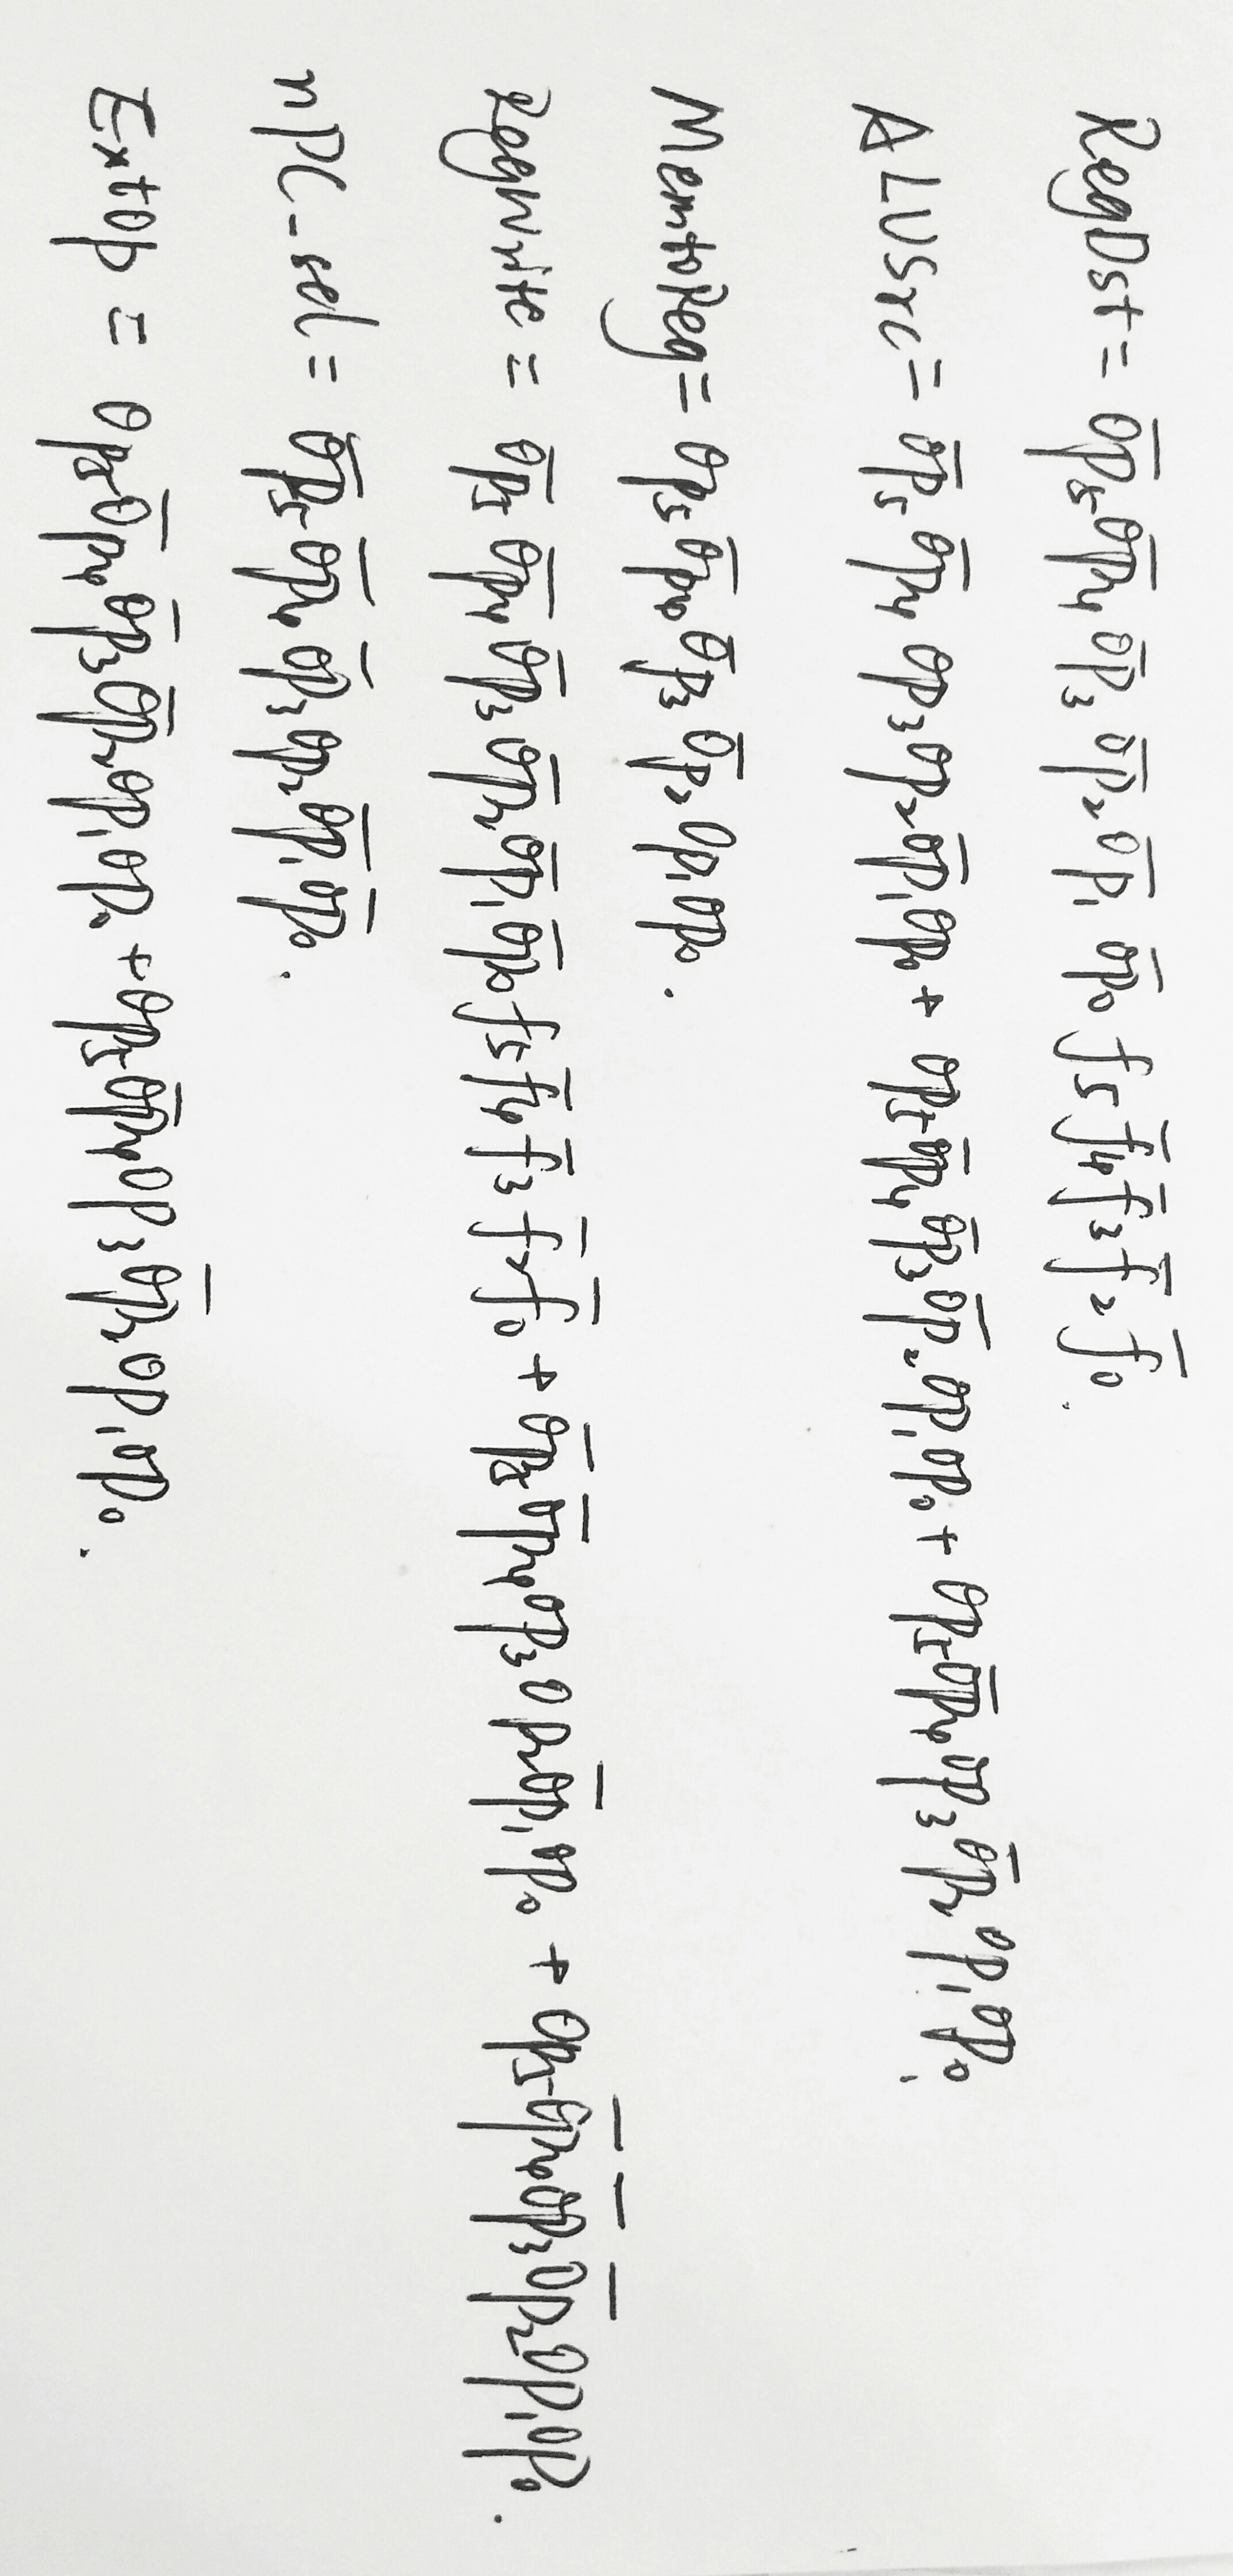 RegDst = o̅p̅₅o̅p̅₄o̅p̅₃o̅p̅₂o̅p̅₁o̅p̅₀f₅f̅₄f̅₃f̅₂f̅₀.
ALUSrc = o̅p̅₅o̅p̅₄op₃op₂o̅p̅₁op₀ + op₅o̅p̅₄o̅p̅₃o̅p̅₂op₁op₀ + op₅o̅p̅₄op₃o̅p̅₂op₁op₀.
MemtoReg = op₅o̅p̅₄o̅p̅₃o̅p̅₂op₁op₀.
RegWrite = o̅p̅₅o̅p̅₄o̅p̅₃o̅p̅₂o̅p̅₁o̅p̅₀f₅f̅₄f̅₃f̅₂f̅₀ + o̅p̅₅o̅p̅₄op₃op₂o̅p̅₁op₀ + op₅o̅p̅₄o̅p̅₃o̅p̅₂op₁op₀.
nPC_sel = o̅p̅₅o̅p̅₄o̅p̅₃op₂o̅p̅₁o̅p̅₀.
Extop = op₅o̅p̅₄o̅p̅₃o̅p̅₂op₁op₀ + op₅o̅p̅₄op₃o̅p̅₂op₁op₀.